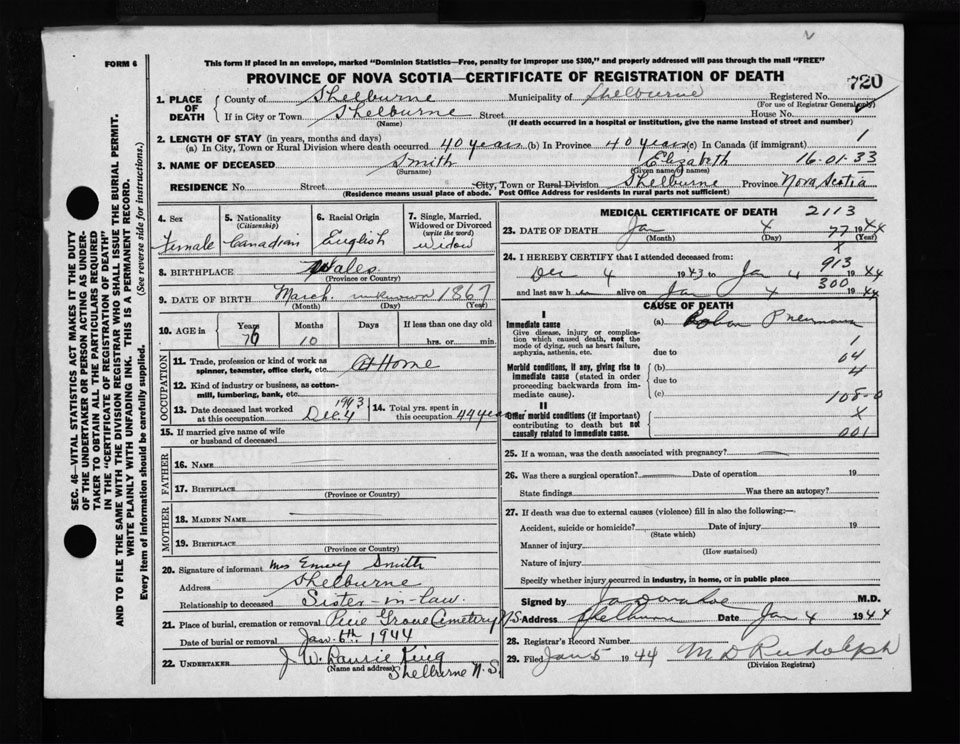 FORM 6
This form if placed in an envelope, marked "Dominion Statistics—Free, penalty for improper use $300," and properly addressed will pass through the mail "FREE"
PROVINCE OF NOVA SCOTIA—CERTIFICATE OF REGISTRATION OF DEATH
720
1. PLACE OF DEATH
County of Shelburne Municipality of Shelburne Registered No.
(For use of Registrar General only)
If in City or Town Shelburne Street House No.
(Name) (If death occurred in a hospital or institution, give the name instead of street and number)
2. LENGTH OF STAY (in years, months and days)
(a) In City, Town or Rural Division where death occurred 40 years (b) In Province 40 years (c) In Canada (if immigrant) 1
3. NAME OF DECEASED Smith Elizabeth 16-01-33
(Surname) (Given name or names)
RESIDENCE No Street City, Town or Rural Division Shelburne Province Nova Scotia
(Residence means usual place of abode. Post Office Address for residents in rural parts not sufficient)
SEC. 46—VITAL STATISTICS ACT MAKES IT THE DUTY
OF THE UNDERTAKER OR PERSON ACTING AS UNDER-
TAKER TO OBTAIN ALL THE PARTICULARS REQUIRED
IN THE "CERTIFICATE OF REGISTRATION OF DEATH"
AND TO FILE THE SAME WITH THE DIVISION REGISTRAR WHO SHALL ISSUE THE BURIAL PERMIT.
WRITE PLAINLY WITH UNFADING INK. THIS IS A PERMANENT RECORD.
Every item of information should be carefully supplied. (See reverse side for instructions.)
4. Sex
Female
5. Nationality
(Citizenship)
Canadian
6. Racial Origin
English
7. Single, Married, Widowed or Divorced
(write the word)
Widow
8. BIRTHPLACE Wales
(Province or Country)
9. DATE OF BIRTH March unknown 1867
(Month) (Day) (Year)
10. AGE in
Years Months Days If less than one day old
76 10 hrs. or min.
OCCUPATION
11. Trade, profession or kind of work as
spinner, teamster, office clerk, etc. At Home
12. Kind of industry or business, as cotton-
mill, lumbering, bank, etc.
13. Date deceased last worked
at this occupation Dec 4 1943
14. Total yrs. spent
in this occupation 44 years
15. If married give name of wife
or husband of deceased
FATHER
16. NAME
17. BIRTHPLACE
(Province or Country)
MOTHER
18. MAIDEN NAME
19. BIRTHPLACE
(Province or Country)
20. Signature of informant Mrs Smith
Address Shelburne
Relationship to deceased Sister-in-law.
21. Place of burial, cremation or removal Pine Grove Cemetery N.S.
Date of burial or removal Jan. 6th 1944
22. UNDERTAKER J. W.
(Name and address) Shelburne N.S.
MEDICAL CERTIFICATE OF DEATH 2113
23. DATE OF DEATH Jan 4 77 1944
(Month) (Day) (Year)
X
24. I HEREBY CERTIFY that I attended deceased from: 913
Dec 4 1943 to Jan 4 1944
300
and last saw her alive on Jan 4 1944
CAUSE OF DEATH
I
Immediate cause
Give disease, injury or complica-
tion which caused death, not the
mode of dying, such as heart failure,
asphyxia, asthenia, etc.
(a) Lobar Pneumonia
1
due to
04
Morbid conditions, if any, giving rise to
immediate cause (stated in order
proceeding backwards from im-
mediate cause).
(b)
4
due to
(c) 108-0
II
Other morbid conditions (if important)
contributing to death but not
causally related to immediate cause.
X
001
25. If a woman, was the death associated with pregnancy?
26. Was there a surgical operation? Date of operation 19
State findings Was there an autopsy?
27. If death was due to external causes (violence) fill in also the following:—
Accident, suicide or homicide? Date of injury 19
(State which)
Manner of injury
(How sustained)
Nature of injury
Specify whether injury occurred in industry, in home, or in public place
Signed by M.D.
Address Shelburne Date Jan 4 1944
28. Registrar's Record Number
29. Filed Jan 5 1944 M D Rudolph
(Division Registrar)